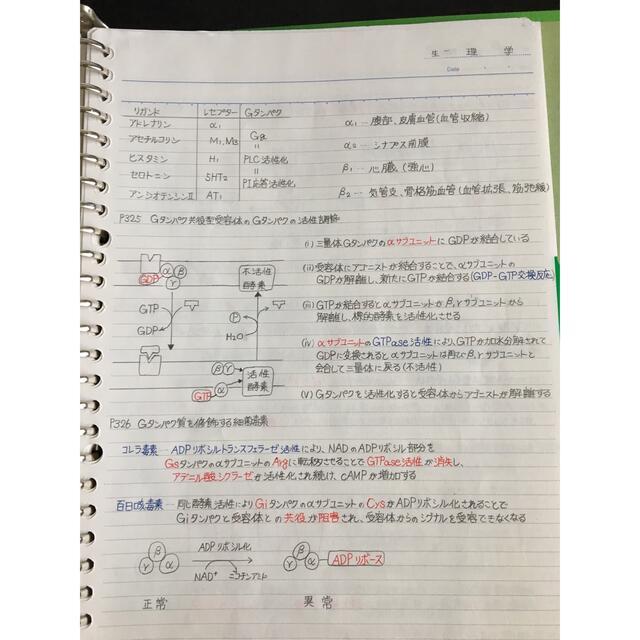 生理学
Date
リガンド レセプター Gタンパク
アドレナリン α1
アセチルコリン M1, M3 Gq
ヒスタミン H1 PLC活性化
セロトニン 5HT2
アンジオテンシンII AT1 PI応答活性化
α1 … 腹部、皮膚血管(血管収縮)
α2 … シナプス前膜
β1 … 心臓(強心)
β2 … 気管支、骨格筋血管(血管拡張、筋弛緩)
P325 Gタンパク共役型受容体のGタンパクの活性調節
(i) 三量体GタンパクのαサブユニットにGDPが結合している
(ii) 受容体にアゴニストが結合することで、αサブユニットの
GDPが解離し、新たにGTPが結合する(GDP-GTP交換反応)
(iii) GTPが結合するとαサブユニットがβ,γサブユニットから
解離し、標的酵素を活性化させる
(iv) αサブユニットのGTPase活性により、GTPが加水分解されて
GDPに変換されるとαサブユニットは再びβ,γサブユニットと
会合して三量体に戻る(不活性)
(v) Gタンパクを活性化すると受容体からアゴニストが解離する
GDP α β γ
不活性酵素
GTP
GDP
P
H2O
β γ
活性酵素
GTP α
P326 Gタンパク質を修飾する細菌毒素
コレラ毒素 ADPリボシルトランスフェラーゼ活性により、NADのADPリボシル部分を
GsタンパクのαサブユニットのArgに転移させることでGTPase活性が消失し、
アデニル酸シクラーゼが活性化され続け、cAMPが増加する
百日咳毒素 同じ酵素活性によりGiタンパクのαサブユニットのCysがADPリボシル化されることで
Giタンパクと受容体との共役が阻害され、受容体からのシグナルを受容できなくなる
β γ α
ADPリボシル化
NAD+ ニコチンアミド
β γ α ADPリボース
正常 異常